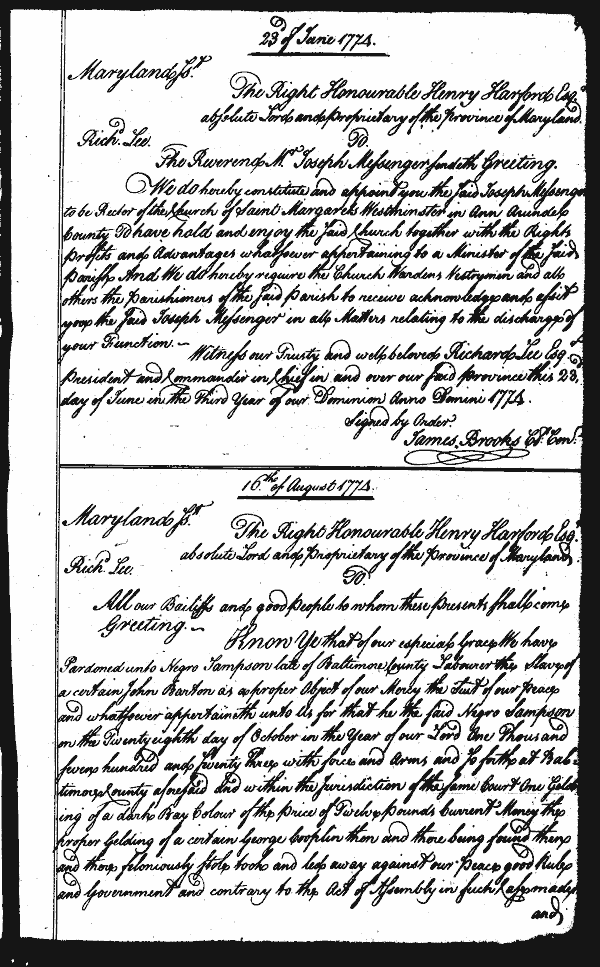 23.d of June 1774.
Maryland Ss.t
The Right Honourable Henry Harford Esq.r
absolute Lord and Proprietary of the Province of Maryland.
Rich.d Lee.
To
The Reverend M.r Joseph Messenger sendeth Greeting.
We do hereby constitute and appoint you the said Joseph Messenger
to be Rector of the Church of Saint Margarets Westminster in Ann Arundel
County To have hold and enjoy the said Church together with the Rights
Profits and Advantages whatsoever appertaining to a Minister of the said
Parish And We do hereby require the Church Wardens Vestrymen and all
others the Parishioners of the said Parish to receive acknowledge and assist
you the said Joseph Messenger in all Matters relating to the discharge of
your Function. —
Witness our Trusty and well beloved Richard Lee Esq.r
President and Commander in Chief in and over our said Province this 23.d
day of June in the Third Year of our Dominion Anno Domini 1774.
Signed by Order.
James Brooks Cl. Con.l
16.th of August 1774.
Maryland Ss.t
The Right Honourable Henry Harford Esq.r
absolute Lord and Proprietary of the Province of Maryland.
Rich.d Lee.
To
All our Bailiffs and good People to whom these Presents shall come
Greeting. —
Know Ye that of our especial Grace We have
Pardoned unto Negro Sampson late of Baltimore County Labourer the Slave of
a certain John Barton as a proper Object of our Mercy the Suit of our Peace
and whatsoever appertaineth unto Us for that he the said Negro Sampson
on the Twenty eighth day of October in the Year of our Lord One Thousand
seven hundred and seventy three with force and Arms and so forth at Bal-
timore County aforesaid And within the Jurisdiction of the same Court One Geld-
ing of a dark Bay Colour of the Price of Twelve Pounds Current Money the
proper Gelding of a certain George Cooplin then and there being found then
and there feloniously stole took and led away against our Peace good Rule
and Government and contrary to the Act of Assembly in such Case made
and